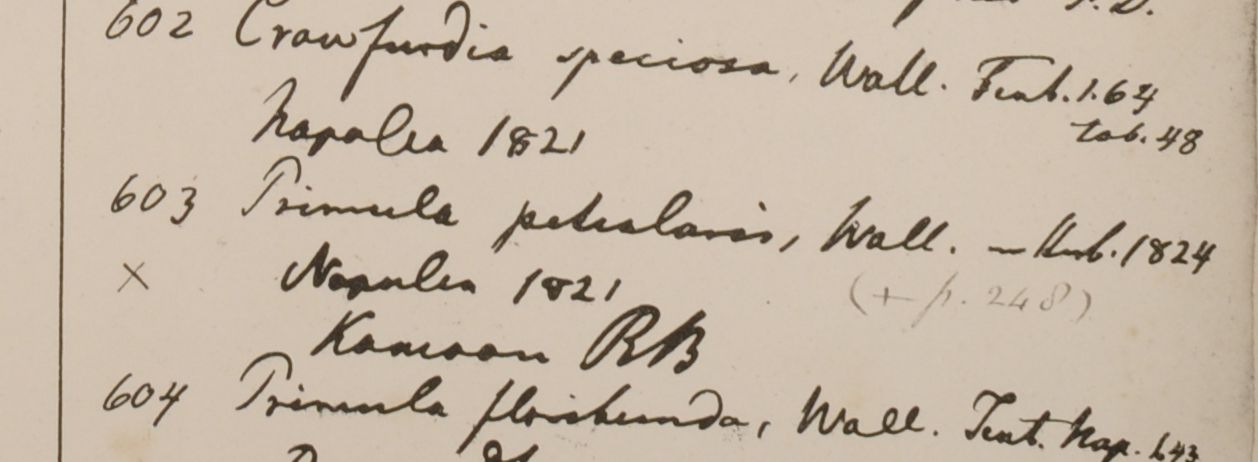 602 Crawfurdia speciosa, Wall. Tent. 1. 64
tab. 48
Napalea 1821
603 Primula petiolaris, Wall. — Herb. 1824
× Napalea 1821 (+ p. 248)
Kamaon RB
604 Primula floribunda, Wall. Tent. Nap. 1.43